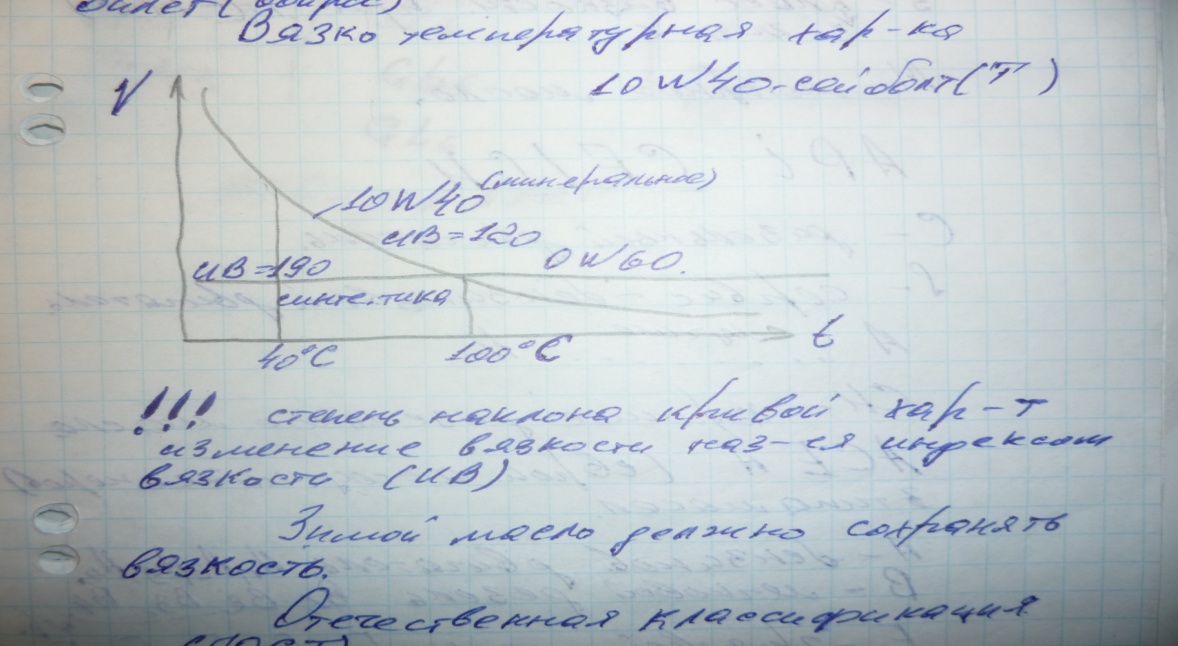 билет (вопрос)
Вязко температурная хар-ка
10W40-сейболт(T)
V
10W40 (минеральное)
ИВ=120
ИВ=190
0W60.
синтетика
40°C 100°C t
!!! степень наклона кривой хар-т
изменение вязкости наз-ся индексом
вязкости (ИВ)
Зимой масло должно сохранять
вязкость.
Отечественная классификация
(ГОСТ)